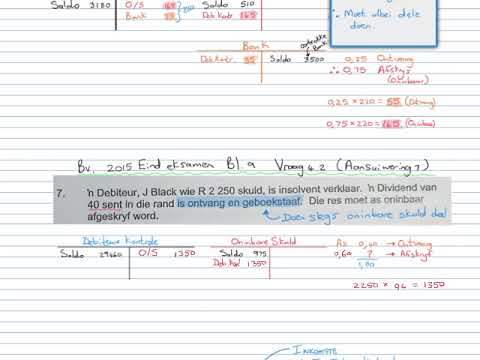 Saldo 3180 O/S 165 Saldo 510
Bank 55 220 Deb Kontr. 165
∴ Moet albei dele
doen.
Bank
Oortrokke Bank
Deb Kontr. 55 Saldo 3500
0,25 Ontvang
∴ 0,75 Afskryf
(Oninbaar)
0,25 × 220 = 55 (Ontvang)
0,75 × 220 = 165 (Oninbaar)
Bv. 2015 Eind eksamen Bl. 9 Vraag 4.2 (Aansuiwering 7)
7. 'n Debiteur, J Black wie R 2 250 skuld, is insolvent verklaar. 'n Dividend van
40 sent in die rand is ontvang en geboekstaaf. Die res moet as oninbaar
afgeskryf word.
Doen slegs oninbare skuld deel
Debiteure Kontrole Oninbare Skuld
As 0,40 → Ontvang
Saldo 29460 O/S 1350 Saldo 975
0,60 ? → Afskryf
Deb Kont 1350
1,00
INKOMSTE